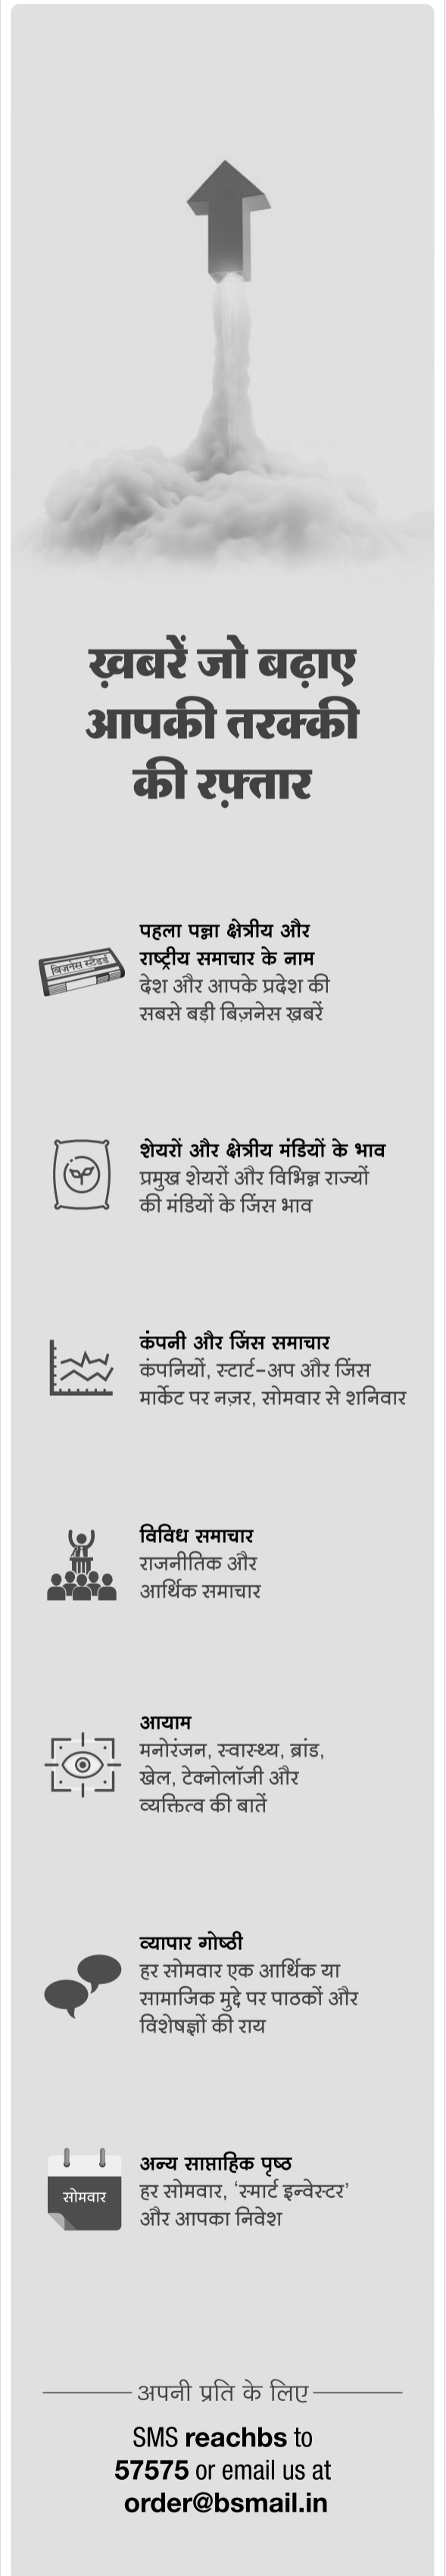 ख़बरें जो बढ़ाए
आपकी तरक्की
की रफ़्तार
बिज़नेस स्टैंडर्ड
पहला पन्ना क्षेत्रीय और
राष्ट्रीय समाचार के नाम
देश और आपके प्रदेश की
सबसे बड़ी बिज़नेस ख़बरें
शेयरों और क्षेत्रीय मंडियों के भाव
प्रमुख शेयरों और विभिन्न राज्यों
की मंडियों के जिंस भाव
कंपनी और जिंस समाचार
कंपनियों, स्टार्ट-अप और जिंस
मार्केट पर नज़र, सोमवार से शनिवार
विविध समाचार
राजनीतिक और
आर्थिक समाचार
आयाम
मनोरंजन, स्वास्थ्य, ब्रांड,
खेल, टेक्नोलॉजी और
व्यक्तित्व की बातें
व्यापार गोष्ठी
हर सोमवार एक आर्थिक या
सामाजिक मुद्दे पर पाठकों और
विशेषज्ञों की राय
सोमवार
अन्य साप्ताहिक पृष्ठ
हर सोमवार, ‘स्मार्ट इन्वेस्टर’
और आपका निवेश
अपनी प्रति के लिए
SMS reachbs to
57575 or email us at
order@bsmail.in